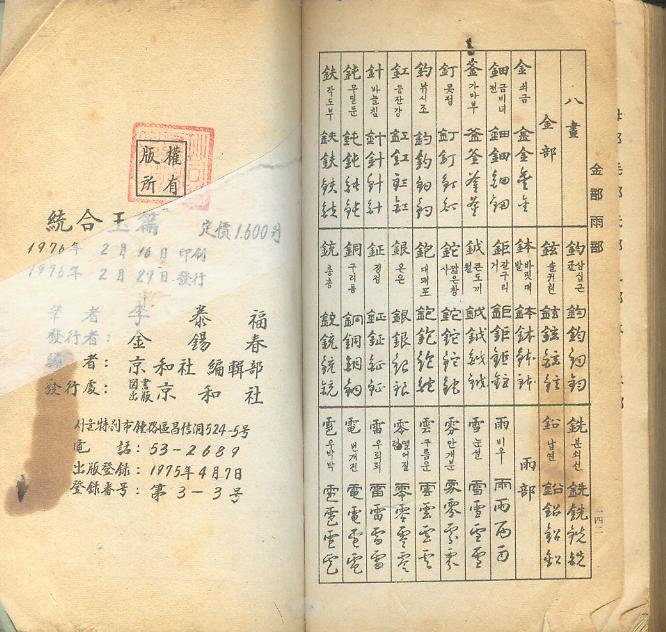 版權
所有
統合玉篇 定價 1.600원
1976年 2月 16日 印刷
1976年 2月 29日 發行
筆者 李泰福
發行者: 金錫春
編者: 京和社 編輯部
發行處: 圖書出版 京和社
서울特別市鍾路區昌信洞524-5号
電話: 53-2689
出版登録: 1975年4月7日
登録番号: 第3-3号
金部 雨部
八畫
金部
金 쇠금 金金金金
鈿 금비녀전 鈿鈿鈿鈿
釜 가마부 釜釜釜釜
釘 못정 釘釘釘釘
釣 낚시조 釣釣釣釣
釭 등잔강 釭釭釭釭
針 바늘침 針針針針
鈍 무딜둔 鈍鈍鈍鈍
鈇 작도부 鈇鈇鈇鈇
鈞 삼십근균 鈞鈞鈞鈞
鉉 솥귀현 鉉鉉鉉鉉
鉢 바릿대발 鉢鉢鉢鉢
鉅 갈구리거 鉅鉅鉅鉅
鉞 큰도끼월 鉞鉞鉞鉞
鉈 짧은창사 鉈鉈鉈鉈
鉋 대패포 鉋鉋鉋鉋
銀 은은 銀銀銀銀
鉦 징정 鉦鉦鉦鉦
銅 구리동 銅銅銅銅
銃 총총 銃銃銃銃
銑 분쇠선 銑銑銑銑
鉛 납연 鉛鉛鉛鉛
雨部
雨 비우 雨雨雨雨
雪 눈설 雪雪雪雪
雰 안개분 雰雰雰雰
雲 구름운 雲雲雲雲
零 떨어질령 零零零零
雷 우뢰뢰 雷雷雷雷
電 번개전 電電電電
雹 우박박 雹雹雹雹
一四二